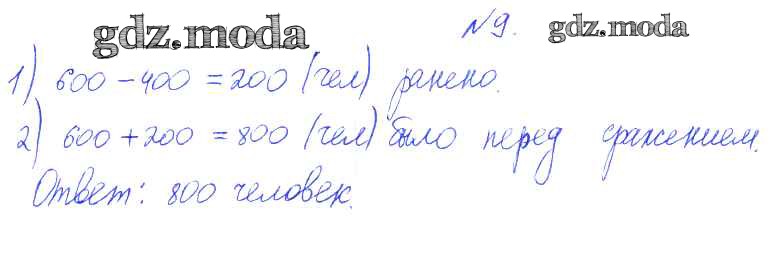 gdz.moda №9. gdz.moda
1) 600 - 400 = 200 (чел) ранено.
2) 600 + 200 = 800 (чел) было перед сражением.
Ответ: 800 человек.